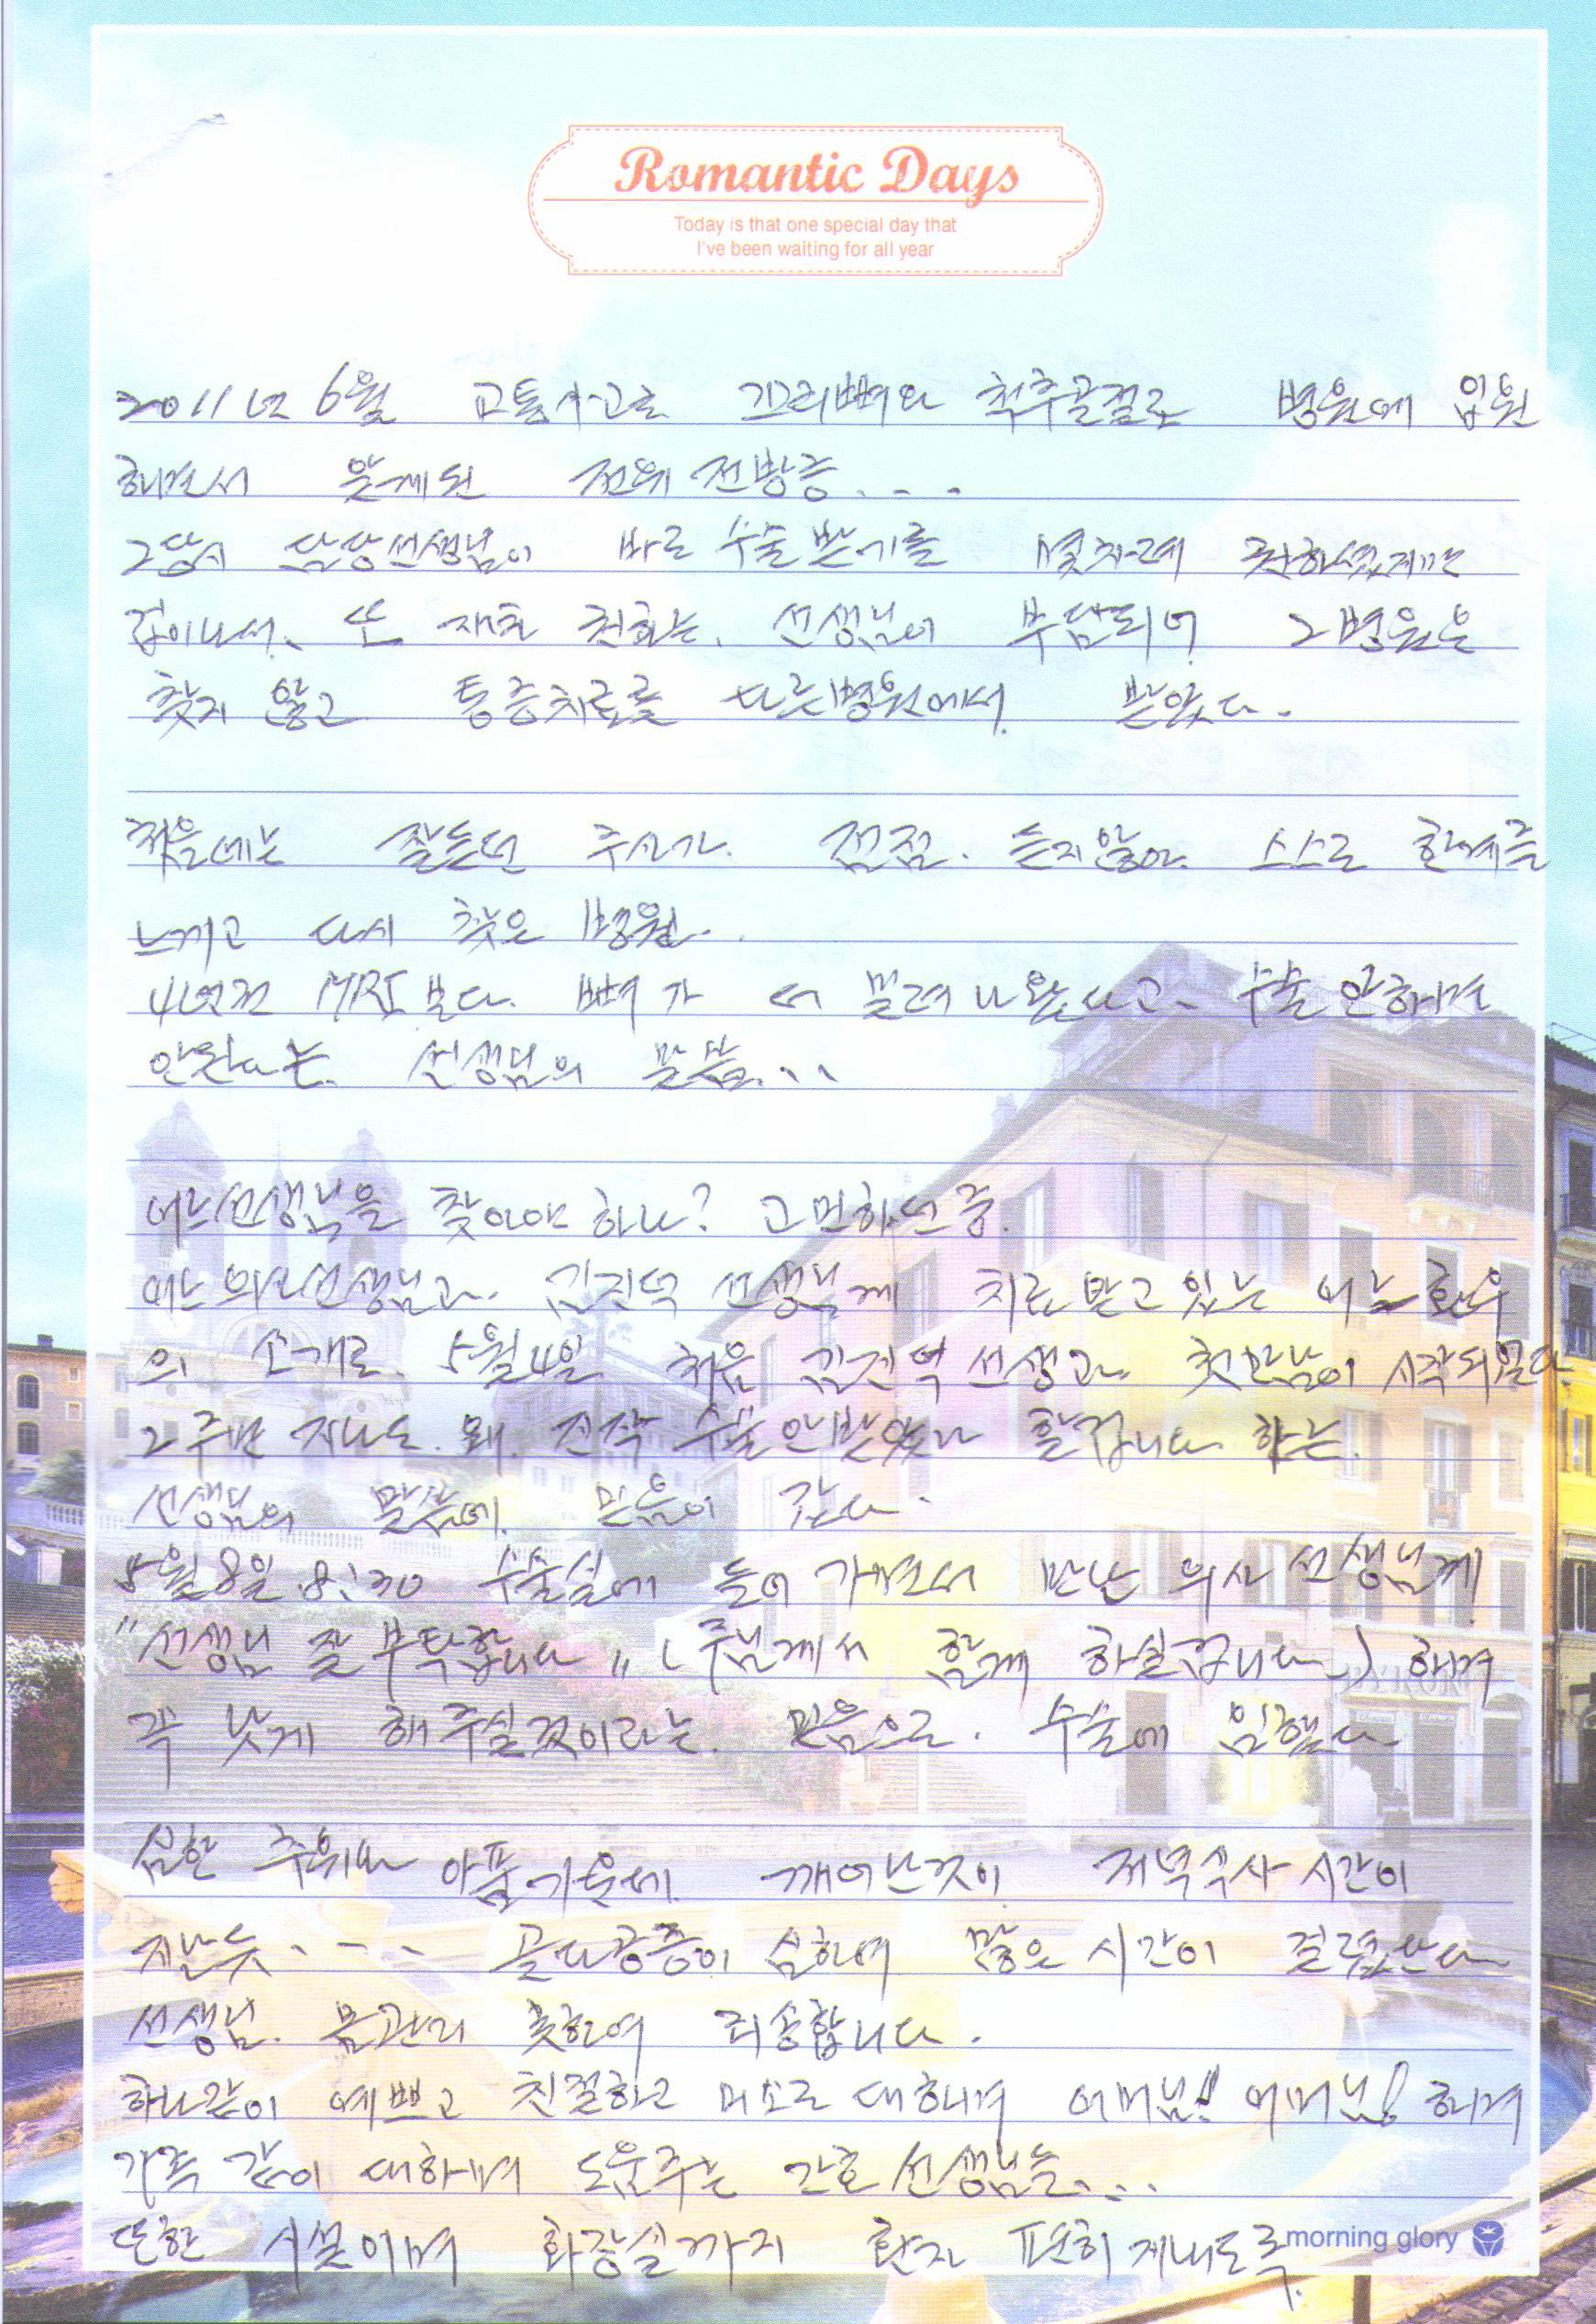 Romantic Days
Today is that one special day that
I've been waiting for all year
2011년 6월 교통사고로 꼬리뼈와 척추골절로 병원에 입원
하면서 알게된 전위 전방증...
그당시 담당선생님이 바로 수술받기를 몇차례 권하셨지만
겁이나서, 또 재촉 권하는, 선생님이 부담되어 그병원은
찾지 않고 통증치료를 다른병원에서 받았다.
처음에는 잘듣던 주사가. 점점. 듣지않아. 스스로 한계를
느끼고 다시 찾은 병원.
4년전 MRI 보다. 뼈가 더 밀려나왔다고. 수술 안하면
안된다는. 선생님의 말씀...
어느선생님을 찾아야 하나? 고민하던중.
어느 의사선생님과. 김진덕 선생님께 치료받고 있는 어느환우
의 소개로. 5월4일 처음 김진덕 선생과. 첫만남이 시작되었다.
2주만 지나도. 왜. 진작 수술안받았나 할겁니다 하는.
선생님의 말씀에. 믿음이 갔다.
5월8일 8:30 수술실에 들어가면서 만난 의사선생님께
"선생님 잘 부탁합니다" (주님께서 함께 하실겁니다) 하며
꼭 낫게 해주실것이라는. 믿음으로. 수술에 임했다
심한 추위와 아픔가운데. 깨어난것이 저녁식사 시간이
지난듯.... 골다공증이 심하여 많은 시간이 걸렸단다
선생님. 몸관리 못하여 죄송합니다.
하나같이 예쁘고 친절하고 미소로 대하며 어머님!! 어머님! 하며
가족 같이 대하며 도움주는 간호 선생님들...
또한 시설이며 화장실까지 환자 편히 지내도록.
morning glory